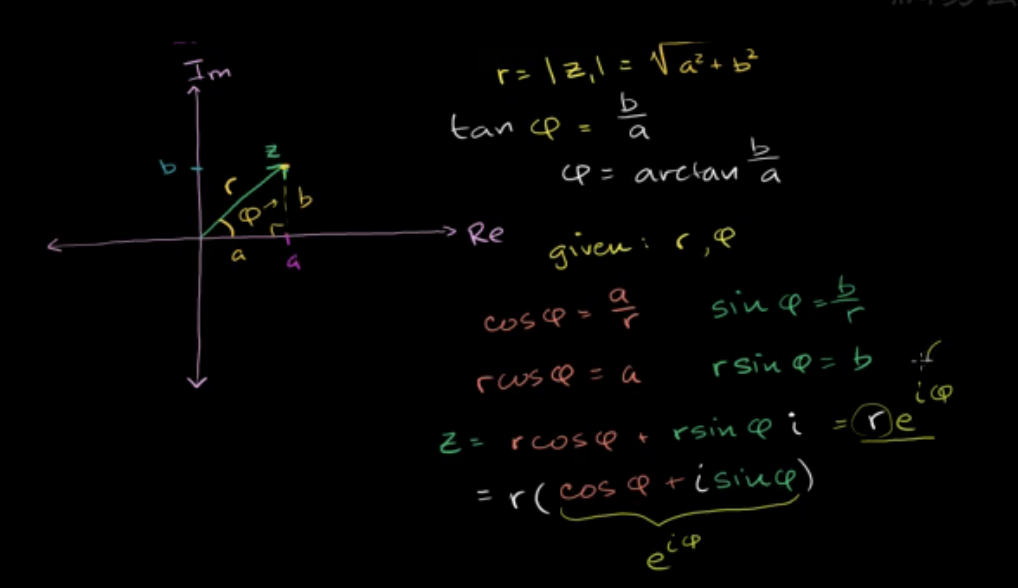 Im
r = |z₁| = √a² + b²
tan φ = b/a
φ = arctan b/a
b
z
r
φ
b
a
a
Re
given: r, φ
cos φ = a/r
sin φ = b/r
r cos φ = a
r sin φ = b
z = r cos φ + r sin φ i = r e^{iφ}
= r( cos φ + i sin φ )
e^{iφ}